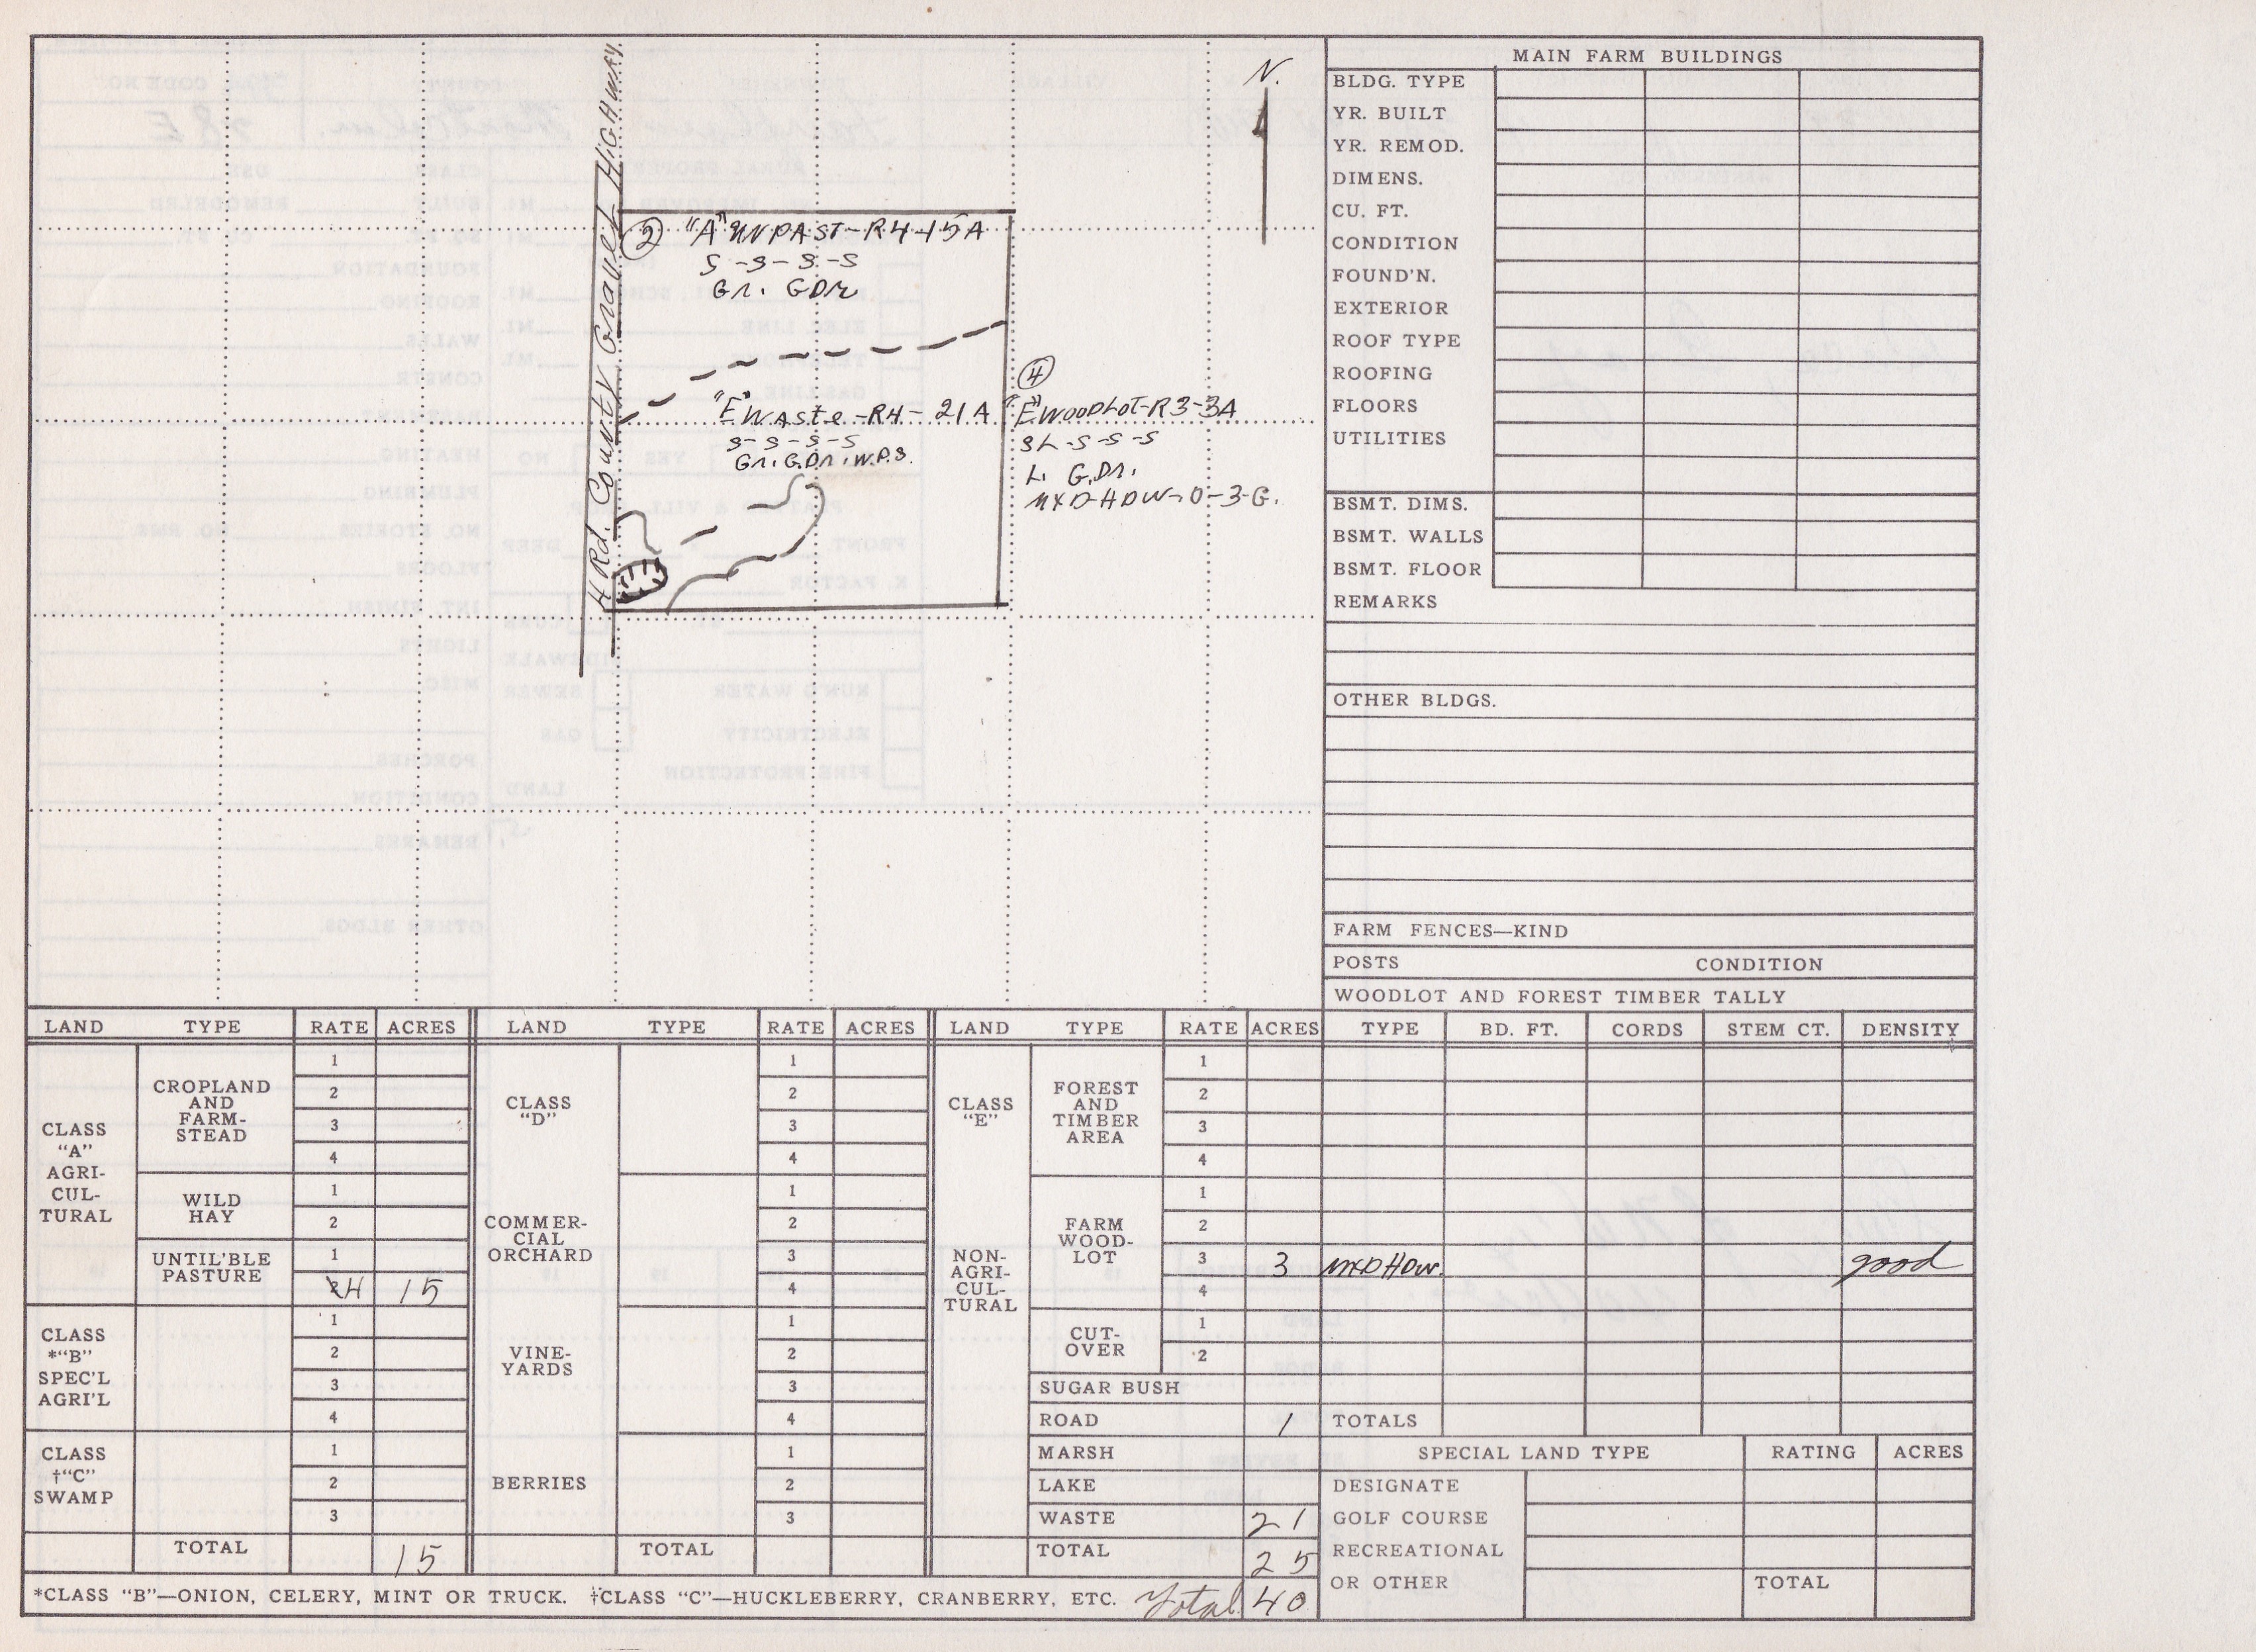 N.
H Rd. County Gravel HiGHWAY.
② "A" UNPAST-R4-15A
S-S-S-S
Gr. GDr
"E" Waste-R4-21A
S-S-S-S
Gr. G.Dr. W.P.S.
④
"E" WOODLOT-R3-3A
SL-S-S-S
L. G.Dr.
MXD-HDW-O-3-G.
MAIN FARM BUILDINGS
BLDG. TYPE
YR. BUILT
YR. REMOD.
DIMENS.
CU. FT.
CONDITION
FOUND'N.
EXTERIOR
ROOF TYPE
ROOFING
FLOORS
UTILITIES
BSMT. DIMS.
BSMT. WALLS
BSMT. FLOOR
REMARKS
OTHER BLDGS.
FARM FENCES—KIND
POSTS CONDITION
WOODLOT AND FOREST TIMBER TALLY
LAND TYPE RATE ACRES
CLASS
"A"
AGRI-
CUL-
TURAL
CROPLAND
AND
FARM-
STEAD
1
2
3
4
WILD
HAY
1
2
UNTIL'BLE
PASTURE
1
4 15
CLASS
*"B"
SPEC'L
AGRI'L
1
2
3
4
CLASS
†"C"
SWAMP
1
2
3
TOTAL 15
LAND TYPE RATE ACRES
CLASS
"D"
1
2
3
4
COMMER-
CIAL
ORCHARD
1
2
3
4
VINE-
YARDS
1
2
3
4
BERRIES
1
2
3
TOTAL
LAND TYPE RATE ACRES
CLASS
"E"
NON-
AGRI-
CUL-
TURAL
FOREST
AND
TIMBER
AREA
1
2
3
4
FARM
WOOD-
LOT
1
2
3 3
4
CUT-
OVER
1
2
SUGAR BUSH
ROAD 1
MARSH
LAKE
WASTE 21
TOTAL 25
TYPE BD. FT. CORDS STEM CT. DENSITY
MXD HDW. good
TOTALS
SPECIAL LAND TYPE RATING ACRES
DESIGNATE
GOLF COURSE
RECREATIONAL
OR OTHER TOTAL
*CLASS "B"—ONION, CELERY, MINT OR TRUCK. †CLASS "C"—HUCKLEBERRY, CRANBERRY, ETC. Total 40